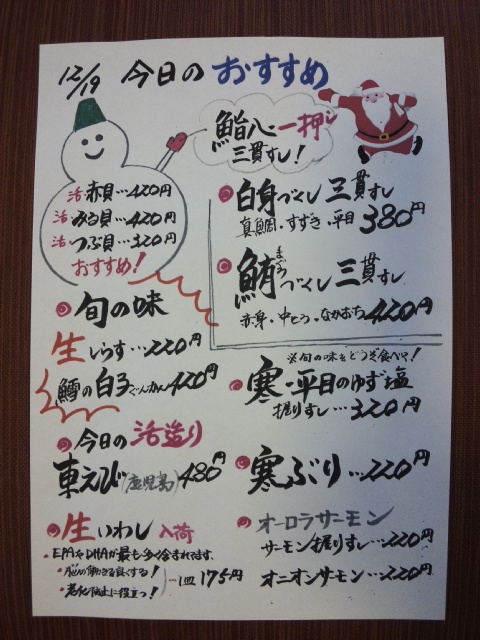 12/19 今日のおすすめ
鮨八一押し
三貫すし!
活赤貝…420円
活みる貝…420円
活つぶ貝…320円
おすすめ!
白身づくし三貫すし
真鯛・すずき・平目 380円
まぐろ
鮪づくし三貫すし
赤身・中とろ・なかおち 420円
旬の味
生しらす…220円
鱈の白子ぐんかん420円
※旬の味をどうぞ食べて!
寒・平目のゆず塩
握りすし…320円
今日の活造り
東えび(鹿児島)480円
寒ぶり…220円
生いわし入荷
・EPAやDHAが最も多く含まれてます。
・脳の働きを良くする!
・老化防止に役立つ!
…一皿175円
オーロラサーモン
サーモン握りすし…220円
オニオンサーモン…220円